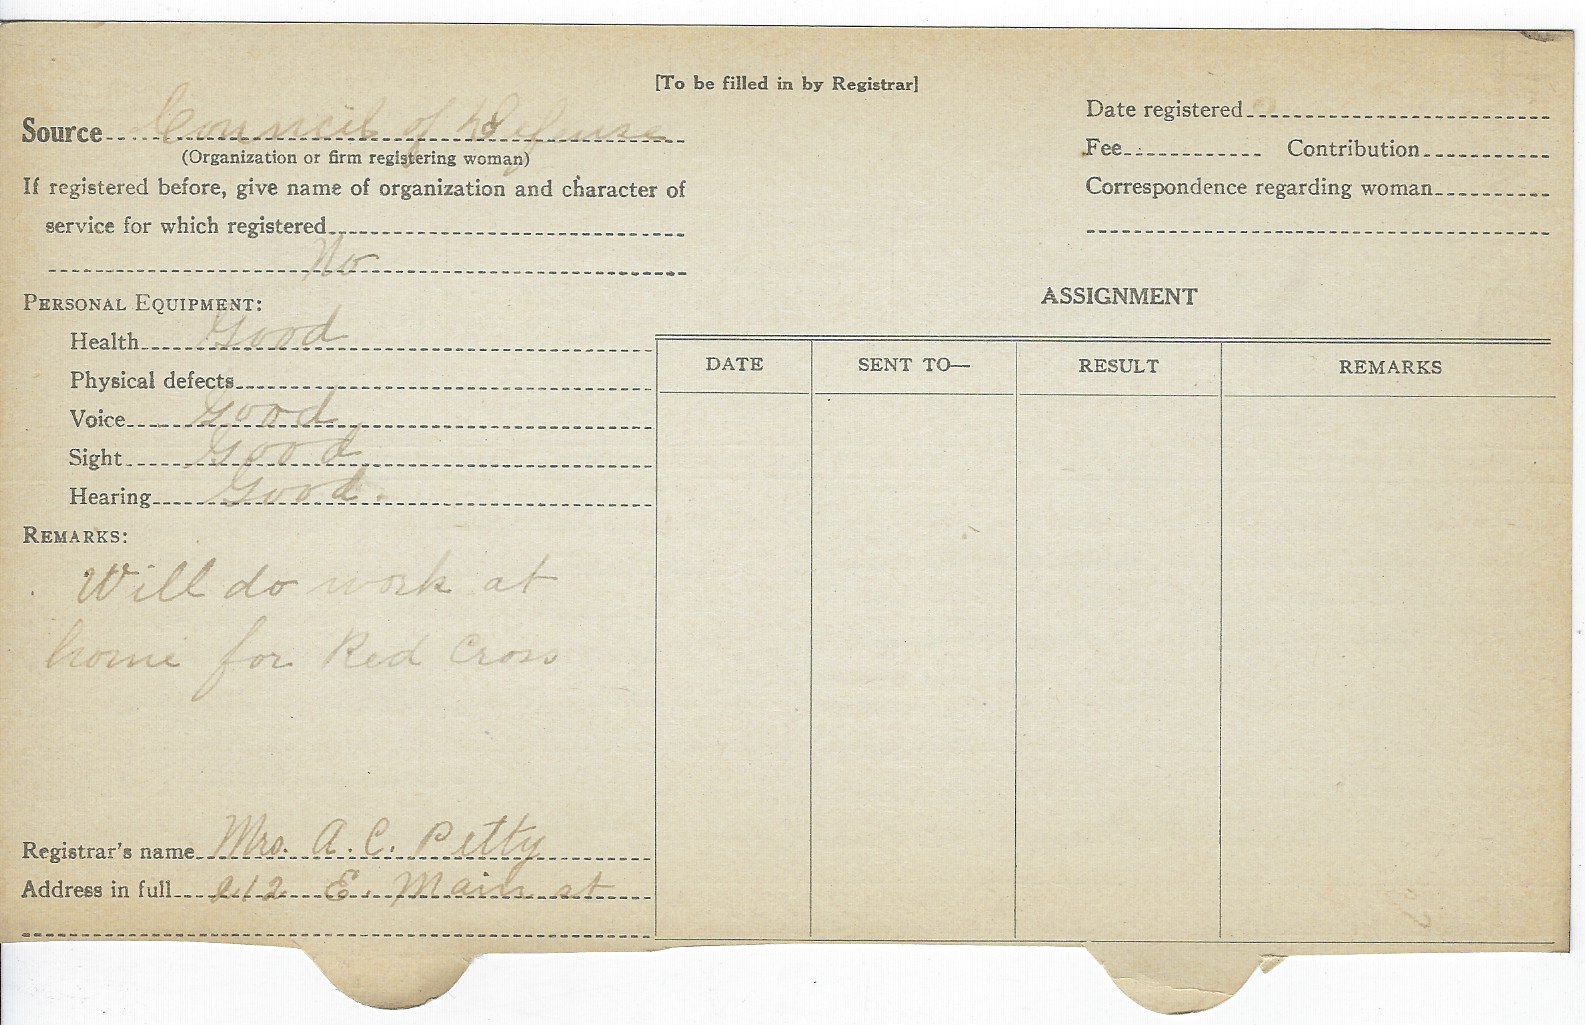 [To be filled in by Registrar]
Source Council of Defense
(Organization or firm registering woman)
If registered before, give name of organization and character of
service for which registered
No
PERSONAL EQUIPMENT:
Health Good
Physical defects
Voice Good
Sight Good
Hearing Good.
REMARKS:
Will do work at
home for Red Cross
Registrar's name Mrs. A. C. Petty
Address in full E. Main st
Date registered
Fee Contribution
Correspondence regarding woman
ASSIGNMENT
DATE SENT TO— RESULT REMARKS